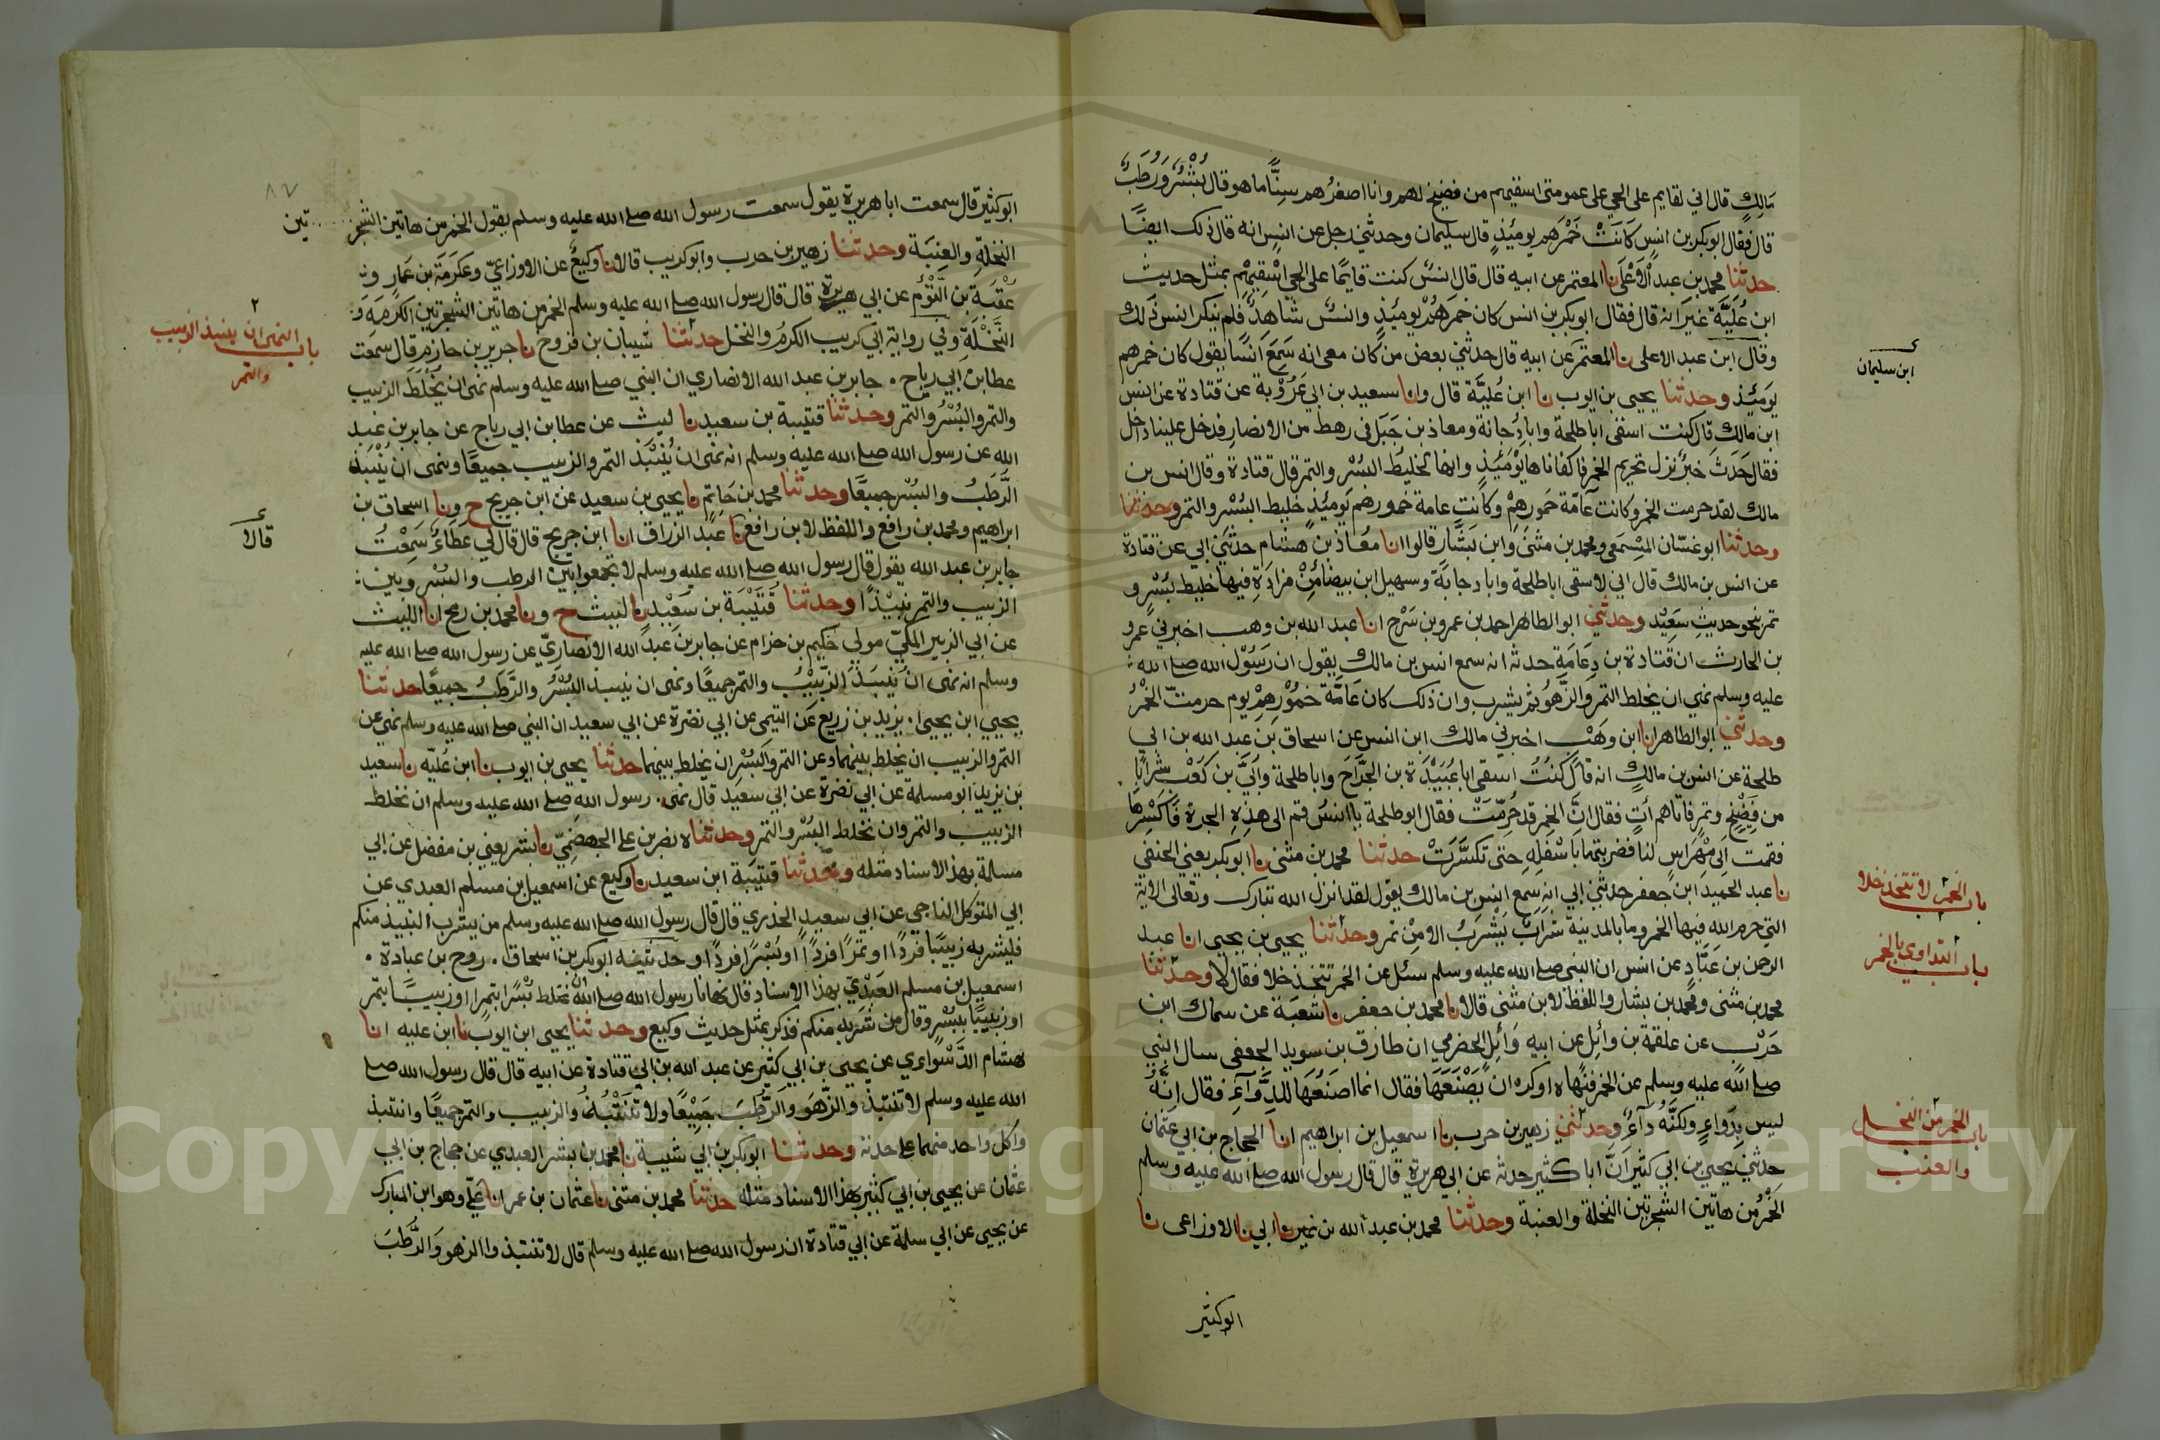 مالك قال اني لقايم على الحي على عمومتي اسقيهم من فضيخ لهم وانا اصغرهم سنا ما هو قال بُسْرٌ وَرُطَبٌ
قال فقال ابو بكر بن انس كَانَتْ خَمْرَهم يومئذٍ قال سليمان وحدثني رجل عن انس انه قال ذلك ايضًا
حدثنا محمد بن عبد الاعلى نا المعتمر عن ابيه قال قال انس كنت قايمًا على الحي اسقيهم بمثل حديث
ابن عُلَيَّة غير انه قال فقال ابو بكر بن انس كان خمرهم يومئذٍ وانس شاهد فلم ينكر انس ذلك
وقال ابن عبد الاعلى نا المعتمر عن ابيه قال حدثني بعض من كان معي انه سَمِعَ انسًا يقول كان خمرهم
ابن سليمان
يومئذ وحدثنا يحيى بن ايوب نا ابن عُليَّة قال وانا سعيد بن ابي عَرُوْبة عن قتادة عن انس
ابن مالك قال كنت اسقى ابا طلحة وابا دُجانة ومعاذ بن جَبَل في رهط من الانصار فدخل علينا داخل
فقال حَدَثَ خبرٌ نزل تحريم الخمر فاكفاناها يَوْمَئِذٍ وانها لخليط البُسْر والتمر قال قتادة وقال انس بن
مالك لقد حرمت الخمر وكانت عامّة خمورهِمْ وكانت عامة خمورهم يَومئِذٍ خليط البُسْر والتمر وحدثنا
وحدثنا ابو غسّان المِسْمَعي ومحمد بن مثنى وابن بَشَّار قالوا انا معاذ بن هشام حدثني ابي عن قتادة
عن انس بن مالك قال اني لاسقى ابا طلحة وابا دجانة وسهيل ابن بيضائمن مزادة فيها خليط بُسْرٍ و
تمر بنحو حديث سَعِيْد وحدثني ابو الطاهر احمد بن عمرو بن سَرْح انا عبد الله بن وهب اخبرني عمرو
بن الحارث ان قتادة بن دِعَامَةَ حدثه انه سمع انس بن مالك يقول ان رَسُوْل الله صلى الله
عليه وسلم نهي ان يخلط التمر والزَّهْوُ ثم يشرب وان ذلك كان عَامَّةَ خمُوْرِهِمْ يوم حرمت الخَمْرُ
وحدثني ابو الطاهر انا ابن وَهْب اخبرني مالك ابن انس عن اسحاق بن عبد الله بن ابي
طلحة عن انس بن مالكٍ انه قال كنتُ اسقى ابا عُبَيْدَة بن الجرَّاح وابا طلحة وأُبَيَّ بن كَعْبٍ شرابًا
من فَضِيْخٍ وتمر فاتاهم آتٍ فقال انَّ الخمر قد حُرِّمَتْ فقال ابو طلحة يا انسُ قم الى هذِهِ الجرة فَاكْسِرْهَا
فقمت الى مِهْرَاسٍ لنا فضربتها باسْفَلِهِ حتى تكسَّرَتْ حدثنا محمد بن مثنى نا ابو بكر يعني الحنفي
نا عبد الحميد ابن جعفر حدثني ابي انه سمع انس بن مالك يقول لقد انزل الله تبارك وتعالى الاية
باب الخمر لا تتخذ خلا
التي حرم الله فيها الخمر وما بالمدينة شَرَابٌ يُشْرَبُ الا مِنْ تمر وحدثنا يحيى بن يحيى انا عبد
باب التداوي بالخمر
الرحمن بن عَبَّادٍ عن انس ان النبي صلى الله عليه وسلم سئل عن الخمر تتخذ خلا فقال لا وحدثنا
محمد بن مثنى ومحمد بن بشار واللفظ لابن مثنى قالا نا محمد بن جعفر نا شعبة عن سماك ابن
حَرْب عن علقمة بن وائل عن ابيه وَائل الحضرمي ان طارق بن سويد الجعفي سال النبي
صلى الله عليه وسلم عن الخمر فنهاه او كره ان يَصْنَعَهَا فقال انما اصنَعُهَا لِلدَّوَآءِ فقال اِنَّهُ
ليس بِدَواءٍ ولكنَّهُ دَآءٌ وحدثني زهير بن حرب نا اسمعيل بن ابراهيم انا الحجاج بن ابي عثمان
باب الخمر من النخل
والعنب
حدثني يحيى بن ابي كثير اَنَّ ابا كثير حدثه عن ابي هريرة قال قال رسول الله صلى الله عليه وسلم
الخَمْرُ مِن هاتين الشجرتين النخلة والعنبة وحدثنا محمد بن عبد الله بن نمير نا ابي نا الاوزاعى نا
ابو كثير
٨٧
ابو كثير قال سمعت ابا هريرة يقول سمعت رسول الله صلى الله عليه وسلم يقول الخمر من هاتين الشجرتين
النخلةِ والعِنَبَة وحدثنا زهير بن حرب وابو كريب قالا نا وكيعٌ عن الاوزاعيّ وعكرمَةَ بن عَمار و
عُقْبَة بن التَّوْأَم عن ابي هريرة قال قال رسول الله صلى الله عليه وسلم الخمر من هاتين الشجرتين الكَرْمَةِ وَ
النَّخْلَةِ وفي رواية ابي كريب الكرمُ والنخل حدثنا شَيبان بن فروخ نا جرير بن حازم قال سمعت
باب النهى ان ينبذ الزبيب
والتمر
عطا بن ابي رباح جابر بن عبد الله الانصاري ان النبي صلى الله عليه وسلم نهى ان يُخْلَطَ الزبيب
والتمر والبُسْرُ والتمر وحدثنا قتيبة بن سعيد نا ليث عن عطا بن ابي رباح عن جابر بن عبد
الله عن رسول الله صلى الله عليه وسلم انه نهى ان يُنْبَذَ التمر والزبيب جميعًا ونهى ان يُنْبَذَ
الرُّطَبُ والبُسْر جميعًا وحدثنا محمد بن حَاتِمٍ نا يحيى بن سعيد عن ابن جريج ح ونا اسحاق بن
ابراهيم ومحمد بن رافع واللفظ لابن رافع نا عبد الرزاق انا ابن جريج قال قال لي عَطَاءٌ سَمِعْتُ
قالا
جابر بن عبد الله يقول قال رسول الله صلى الله عليه وسلم لا تجمعوا بين الرطب والبُسْر وبين
الزبيب والتمر نبِيْذًا وحدثنا قُتَيْبَة بن سَعِيْد نا ليث ح ونا محمد بن رمح انا الليث
عن ابي الزبير المكّيّ مولي حَكيم بن حزام عن جابر بن عبد الله الانصاريّ عن رسول الله صلى الله عليه
وسلم انه نهى ان يُنبَذَ الزَّبِيْبُ والتمر جميعًا ونهى ان ينبذ البُسْرُ والرُّطَبُ جميعًا حدثنا
يحيي ابن يحيى ا. يزيد بن زريع عن التيمى عن ابي نضرة عن ابي سعيد ان النبي صلى الله عليه وسلم نهى عن
التمر والزبيب ان يخلط بينهما وعن التمر والبُسْر ان يخلط بينهما حدثنا يحيى بن ايوب نا ابن عُليّه نا سعيد
بن يزيد ابو مسلمة عن ابي نضرة عن ابي سعيد قال نهى رسول الله صلى الله عليه وسلم ان نخلط
الزبيب والتمر وان نخلط البُسْر والتمر وحدثناه نصر بن على الجهضمِيّ نا بشر يعني بن مفضل عن ابي
مسلمة بهذا الاسناد مثله وحدثنا قتيبة ابن سعيد نا وكيع عن اسمعيل بن مسلم العبدي عن
ابي المتوكل الناجي عن ابي سعيد الخدري قال قال رسول الله صلى الله عليه وسلم من يشرب النبيذ منكم
فليشربه زبيبًا فردًا او تمرًا فردًا او بُسْرًا فردًا وحدثنيه ابو بكر بن اسحاق ا. روح بن عبادة
اسمعيل بن مسلم العَبْدي بهذا الاسناد قال نهانا رسول الله صلى الله ان نخلط بُسْرًا بتمر او زبيبًا بتمر
او زبيبًا ببُسْرٍ وقال من شَرِبَه منكم فذكر بمثل حديث وكيع وحدثنا يحيى ابن ايوب نا ابن عليه انا
هشام الدَّسْتواءي عن يحيى بن ابي كثير عن عبد الله بن ابي قتادة عن ابيه قال قال رسول الله صلى
الله عليه وسلم لا تنتبذوا الزّهْوَ والرُّطَبَ جَمِيْعًا ولا تَنْتَبِذُوا الزبيب والتمر جميعًا وانتبذ
واكل واحد منهما على حدته وحدثنا ابو بكر بن ابي شيبة نا محمد بن بشر العبدي عن حجاج بن ابي
عثمان عن يحيى بن ابي كثير بهذا الاسناد مثله حدثنا محمد بن مثنى نا عثمان بن عمر انا عليّ وهو ابن المبارك
عن يحيى عن ابي سلمة عن ابي قتادة ان رسول الله صلى الله عليه وسلم قال لا تنتبذوا الزهو وَالرُّطَبَ
Copyright © King Saud University